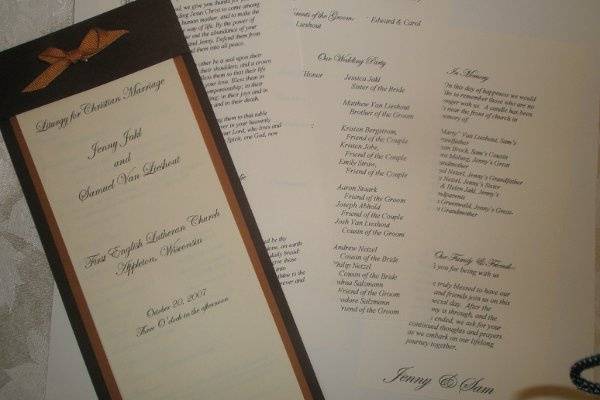 Liturgy for Christian Marriage
Jenny Jahl
and
Samuel Van Lieshout
First English Lutheran Church
Appleton, Wisconsin
October 20, 2007
Three O'clock in the afternoon
we give you thanks for
ding Jesus Christ to come among
human mother, and to make the
way of life. By the power of
er and the abundance of your
and Jenny. Defend them from
them into all peace.
ther be a seal upon their
their shoulders, and a crown
less them so that their life
your love. Bless them in
mpanionship; in their
ing; in their joys and in
and in their death.
them to that table
in your heavenly
ur Lord, who lives and
Spirit, one God, now
be thy
on earth
daily bread;
give those
into
is the
rever and
Parents of the Groom Edward & Carol
Lieshout
Our Wedding Party
Honor Jessica Jahl
Sister of the Bride
Matthew Van Lieshout
Brother of the Groom
Kristen Bergstrom,
Friend of the Couple
Kristen Jobe,
Friend of the Couple
Emily Straw,
Friend of the Couple
Aaron Stuark
Friend of the Groom
Joseph Abhold
Friend of the Couple
Josh Van Lieshout
Cousin of the Groom
Andrew Netzel
Cousin of the Bride
Philip Netzel
Cousin of the Bride
Joshua Salzmann
Friend of the Groom
Theodore Salzmann
Friend of the Groom
In Memory
On this day of happiness we would
like to remember those who are no
longer with us. A candle has been
near the front of church in
memory of:
"Marty" Van Lieshout, Sam's
Grandfather
Brock, Sam's Cousin
Molnag, Jenny's Great
Netzel, Jenny's Grandfather
Netzel, Jenny's Sister
& Helen Jahl, Jenny's
Grandparents
Gruenwald, Jenny's Great-
Grandmother
Our Family & Friends~
you for being with us
truly blessed to have our
and friends join us on this
special day. After the
is through, and the
ended, we ask for your
continued thoughts and prayers
as we embark on our lifelong
journey together.
Jenny & Sam